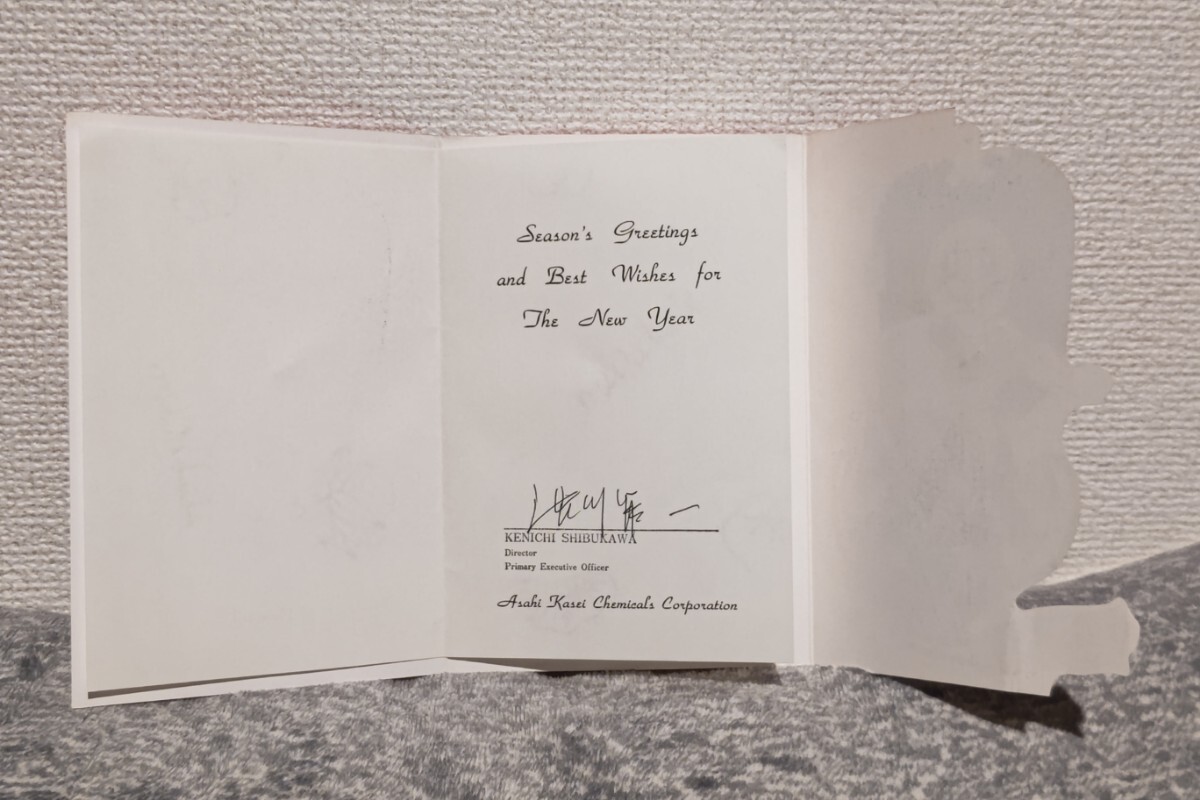 Season's Greetings
and Best Wishes for
The New Year
渋川賢一
KENICHI SHIBUKAWA
Director
Primary Executive Officer
Asahi Kasei Chemicals Corporation